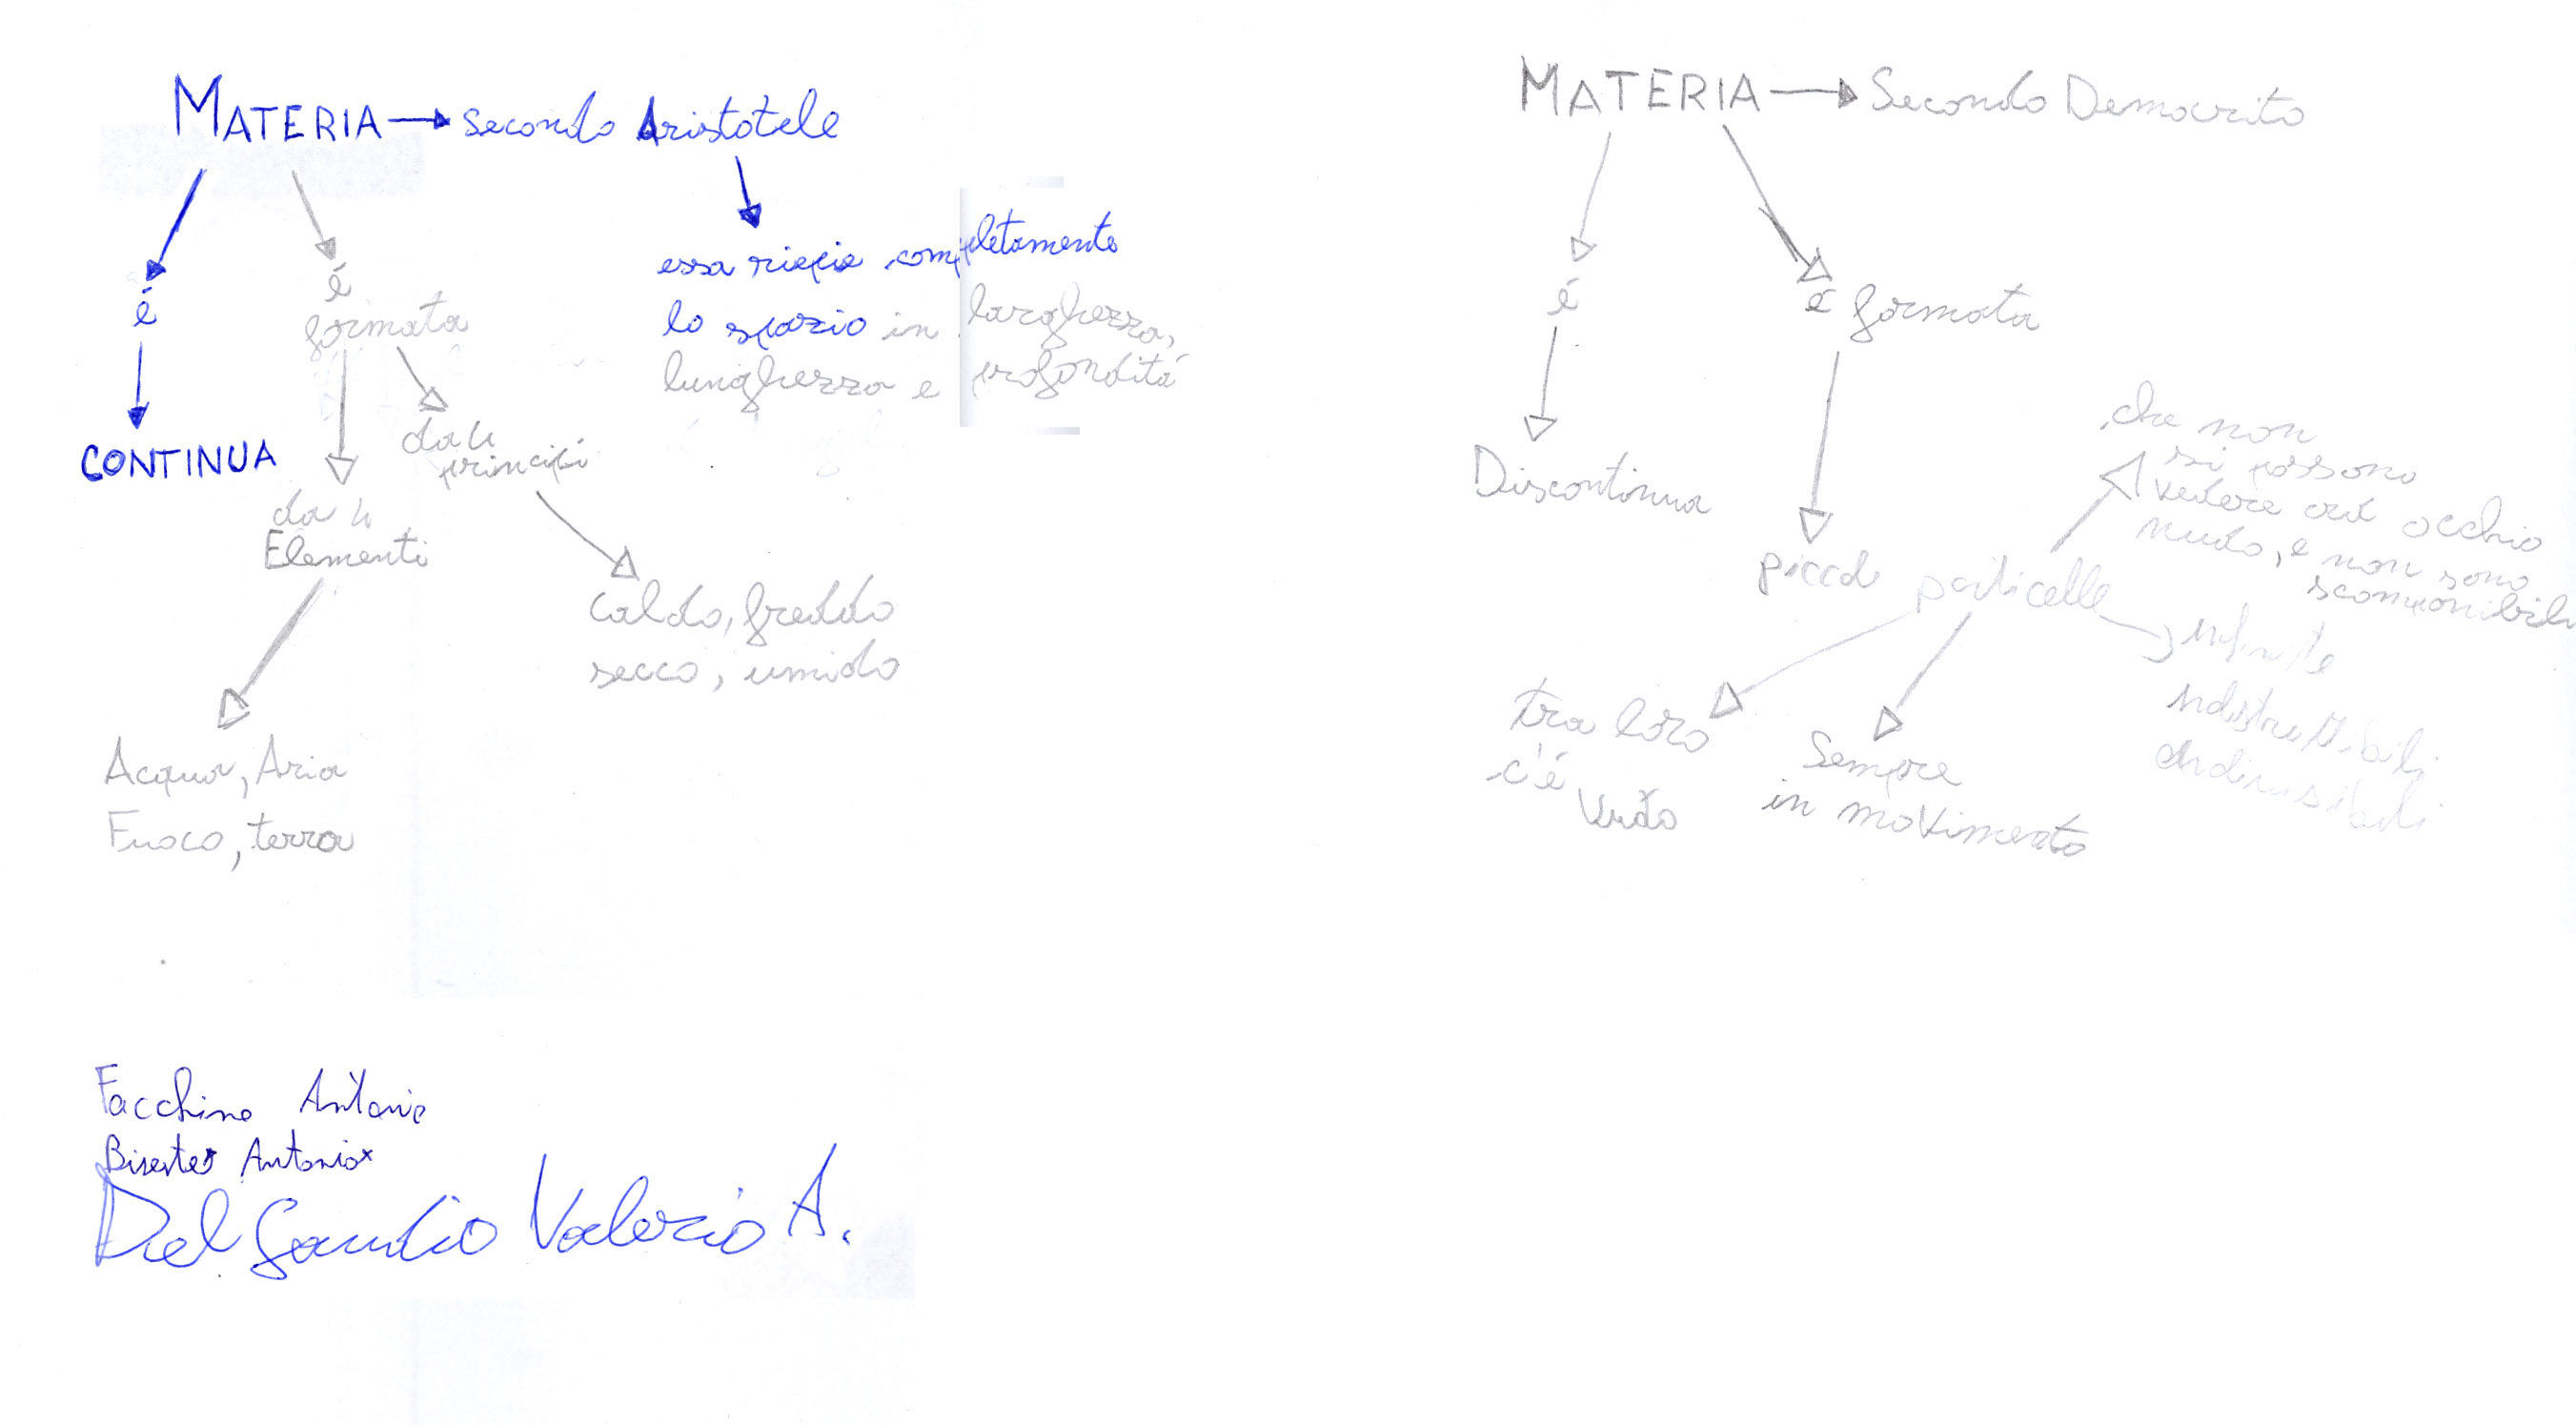 MATERIA → secondo Aristotele
é
CONTINUA
é
formata
da 4
Elementi
Acqua, Aria
Fuoco, terra
da 4
principi
Caldo, freddo
secco, umido
essa riepie completamente
lo spazio in larghezza,
lunghezza e profonditá
Facchino Antonio
Antonio
Del Gaudio Valerio A.
MATERIA → Secondo Democrito
é
Discontinua
é formata
piccole particelle
che non
si possono
vedere ad occhio
nudo, e non sono
scomponibili
tra loro
c'é
vuoto
Sempre
in movimento
infinite
indistruttibili
indivisibili